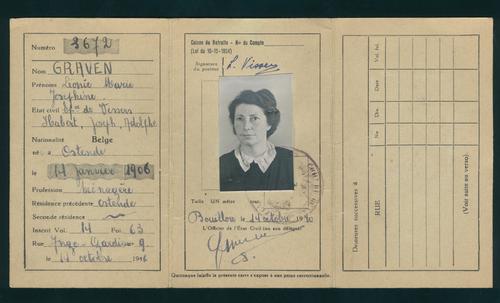 Numéro 3672
Nom GRAVEN
Prénoms Léonie Marie
Joséphine
Etat civil de Vissers
Hubert, Joseph, Adolphe
Nationalité Belge
né à Ostende
le 14 janvier 1906
Profession Ménagère
Résidence précédente Ostende
Seconde résidence
Inscrit Vol. 14 Fol. 63
Rue 9
le 11 octobre
Caisse de Retraite - No du Compte
(Loi du 10-12-1924)
Signature
du porteur L. Vissers
Taille UN mètre
Bouillon, le 14 octobre
L'Officier de l'État Civil (ou son délégué)
Quiconque falsifie la présente carte s'expose à une peine correctionnelle.
Demeures successives à
RUE
No
Date
Vol. fol.
(Voir suite au verso)